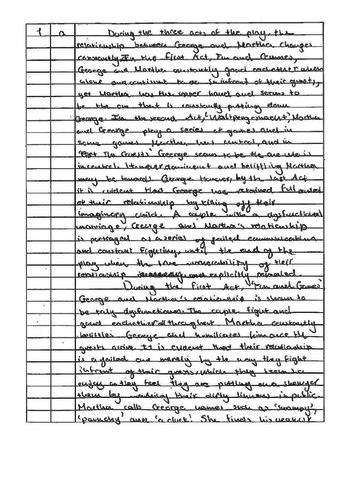 1 a During the three acts of the play, the
relationship between George and Martha changes
constantly. In the First Act, 'Fun and Games',
George and Martha constantly goad each other
and continue to do so infront of their guests,
yet Martha has the upper hand and seems to
be the one that is constantly putting down
George. In the second Act, 'Walpurgisnacht', Martha
and George play a series of games and in
some games Martha has control, and in
'Get The Guests' George seems to be the one who is
in control. However dominant and belittling Martha
may be towards George However, by the last Act
it is evident that George has retained full control
of their relationship by killing off their
imaginary child. A couple with a dysfunctional
marriage, George and Martha's relationship
is portrayed as a series of failed communication
and constant fighting, until the end of the
play when the true vulnerability of their
relationship explicitly revealed.
During the First Act, 'Fun and Games'
George and Martha's relationship is shown to
be truly dysfunctional. The couple fight and
goad each other all throughout. Martha constantly
belittles George and humiliates him once the
guests arrive. It is evident that their relationship
is a failed one merely by the way they fight
infront of their guests, which they seem to
enjoy as they feel they are putting on a show for
them by washing their dirty linens in public.
Martha calls George names such as 'swampy',
'paunchy' and 'a cluck'. She finds his weakest